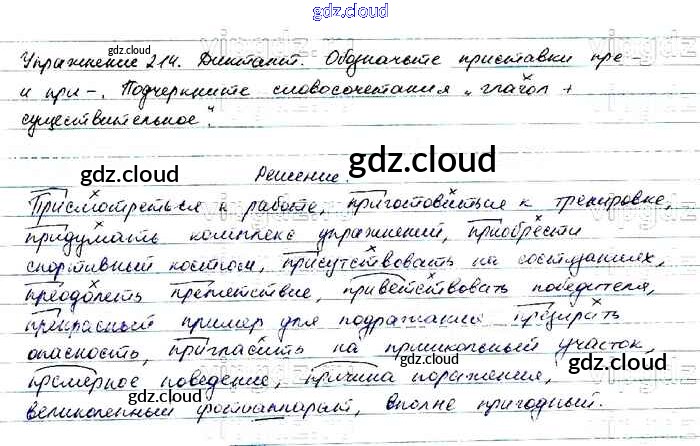 gdz.cloud
gdz.cloud
Упражнение 214. Диктант. Обозначьте приставки пре-
и при-. Подчеркните словосочетания „глагол +
существительное".
gdz.cloud
Решение.
gdz.cloud
Присмотреться к работе, приготовиться к тренировке,
придумать комплекс упражнений, приобрести
спортивный костюм, присутствовать на состязаниях,
преодолеть препятствие, приветствовать победителя,
прекрасный пример для подражания презирать
опасность, пригласить на пришкольный участок,
примерное поведение, причина поражения,
великолепный фотоаппарат, вполне пригодный.
gdz.cloud
gdz.cloud
gdz.cloud
gdz.cloud
gdz.cloud
gdz.cloud